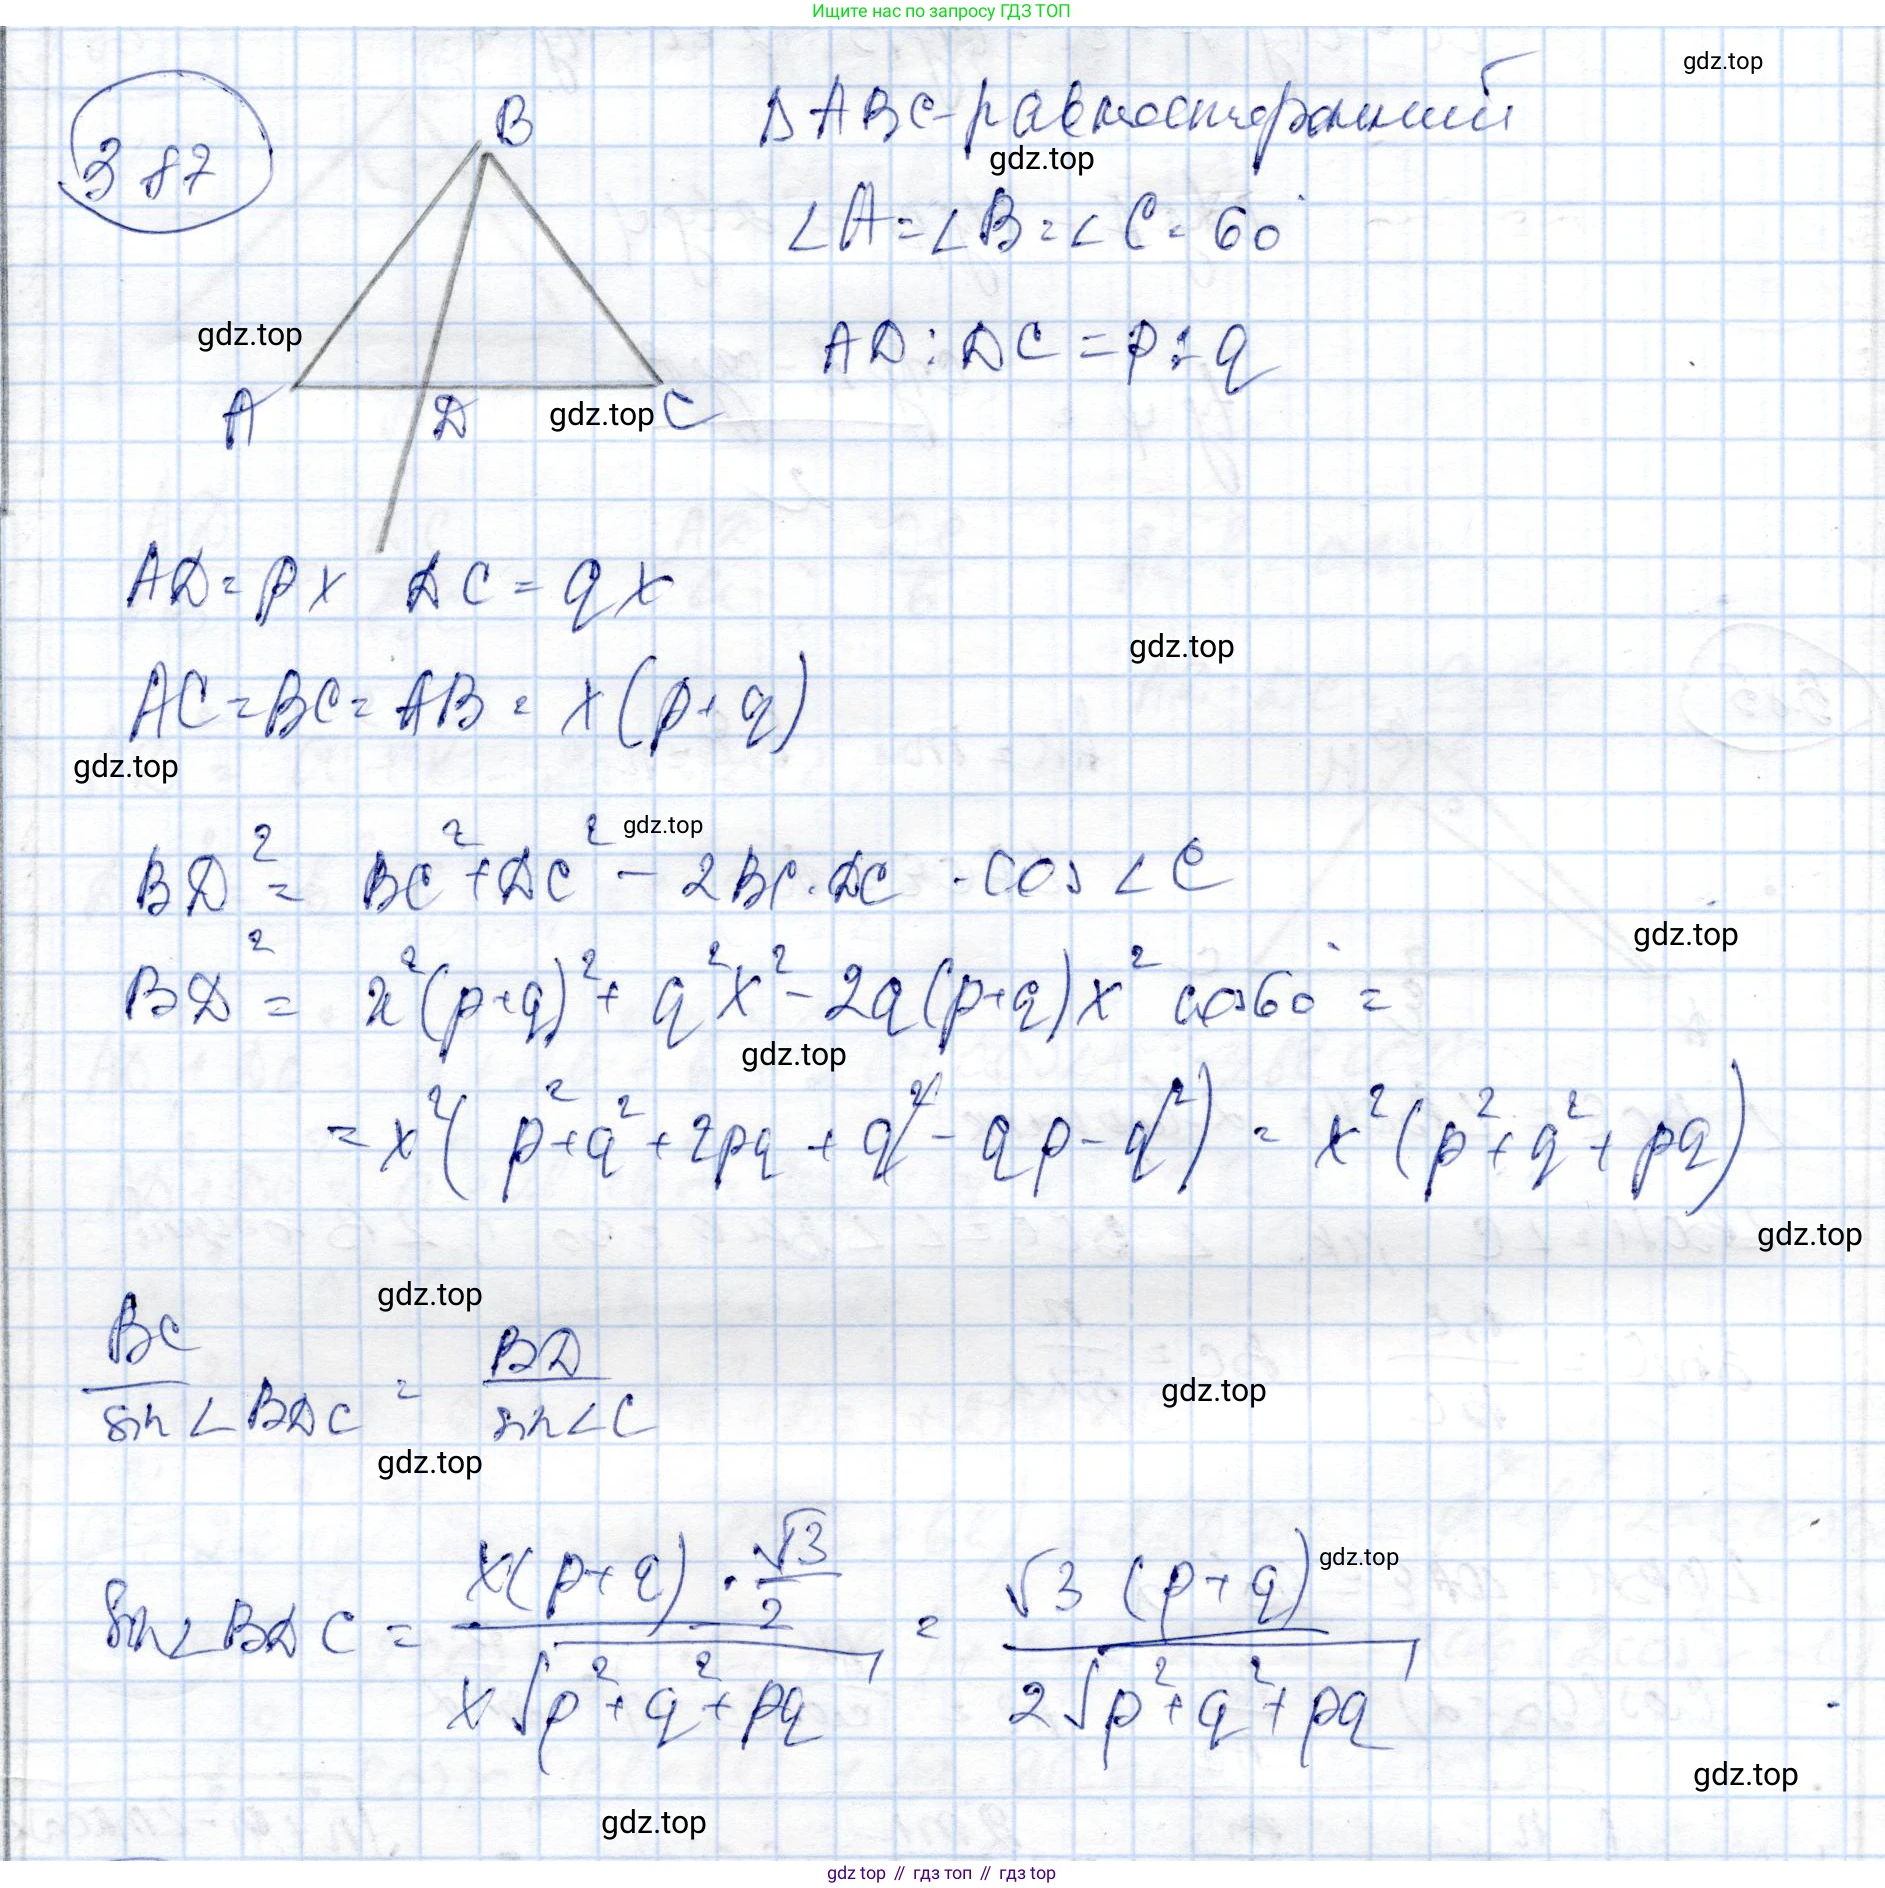 Ищите нас по запросу ГДЗ ТОП
gdz.top
387
B
A
D
C
Δ ABC - равносторонний
gdz.top
∠A = ∠B = ∠C = 60°
gdz.top
AD : DC = p : q
gdz.top
AD = px DC = qx
gdz.top
AC = BC = AB = x(p+q)
gdz.top
gdz.top
BD² = BC² + DC² - 2BC·DC ·cos∠C
gdz.top
BD² = x²(p+q)² + q²x² - 2q(p+q)x² cos60° =
gdz.top
= x²(p²+q²+2pq+q²-qp-q²) = x²(p²+q²+pq)
gdz.top
gdz.top
BC / sin∠BDC = BD / sin∠C
gdz.top
gdz.top
gdz.top
sin∠BDC = x(p+q)·√3/2 / x√(p²+q²+pq) = √3(p+q) / 2√(p²+q²+pq)
gdz.top
gdz.top
gdz top // гдз топ // гдз top